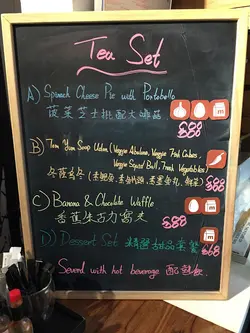 Tea Set
A) Spinach Cheese Pie with Portobello
菠菜芝士批配大啡菇
$88
B) Tom Yum Soup Udon (Veggie Abalone, Veggie Fish Cakes,
Veggie Squid Ball, Fresh Vegetables)
冬蔭烏冬
$88
C) Banana & Chocolate Waffle
香蕉朱古力窩夫
$88
D) Dessert Set 精選甜品套餐
$68
Served with hot beverage 配熱飲